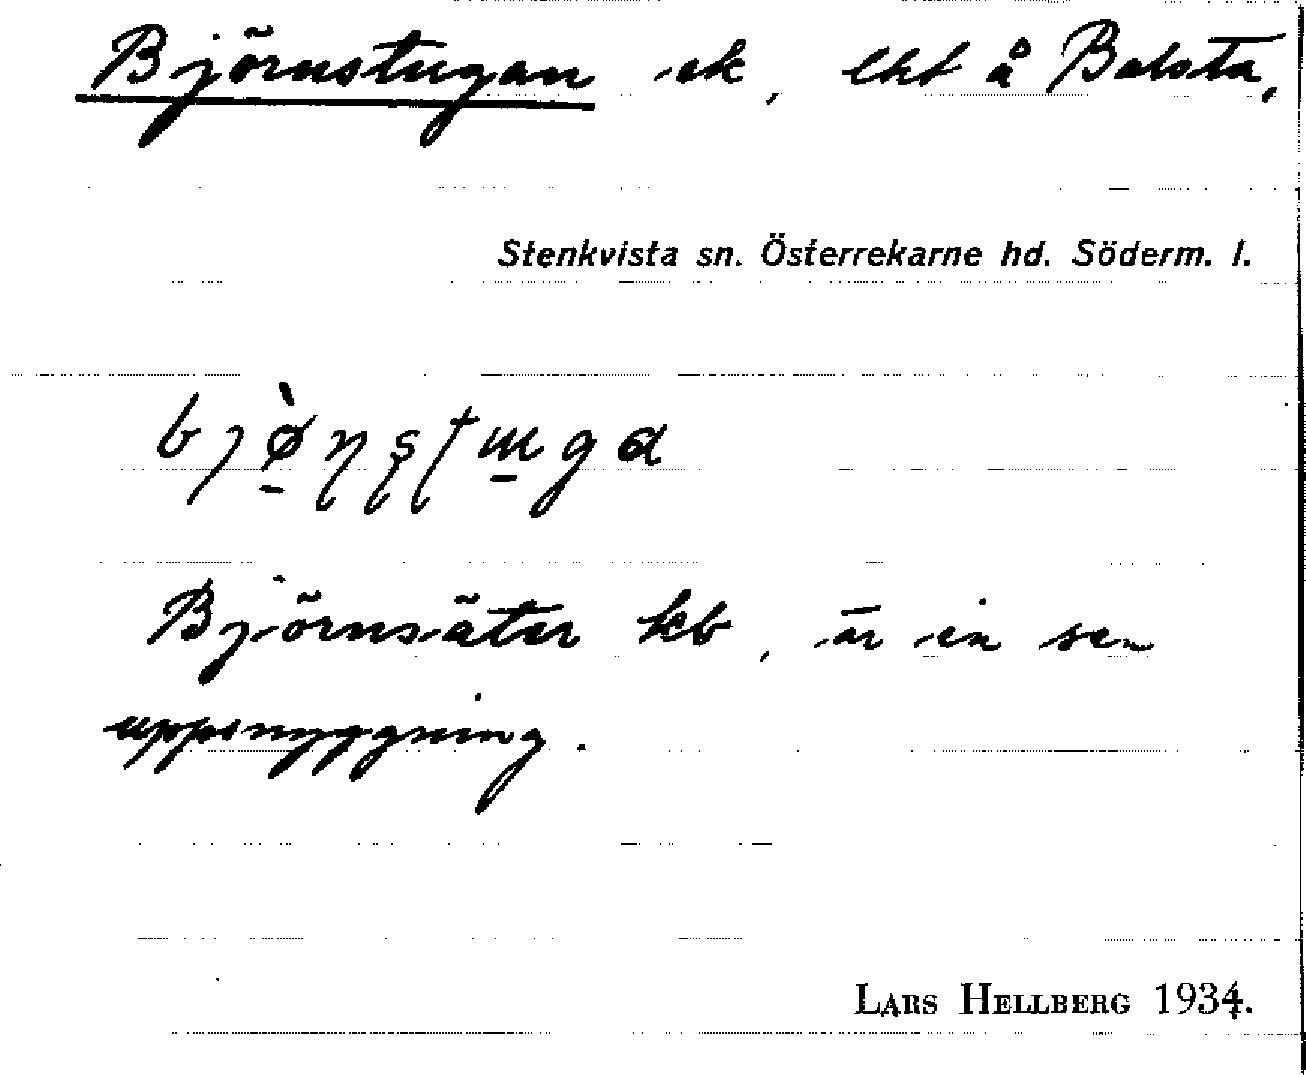 Björnstugan ek, lht å Balsta,
Stenkvista sn. Österrekarne hd. Söderm. l.
bjø̠̀ɳʂʈɯ̠ga
Björnsäter kb, är en sen
uppsnyggning.
LARS HELLBERG 1934.